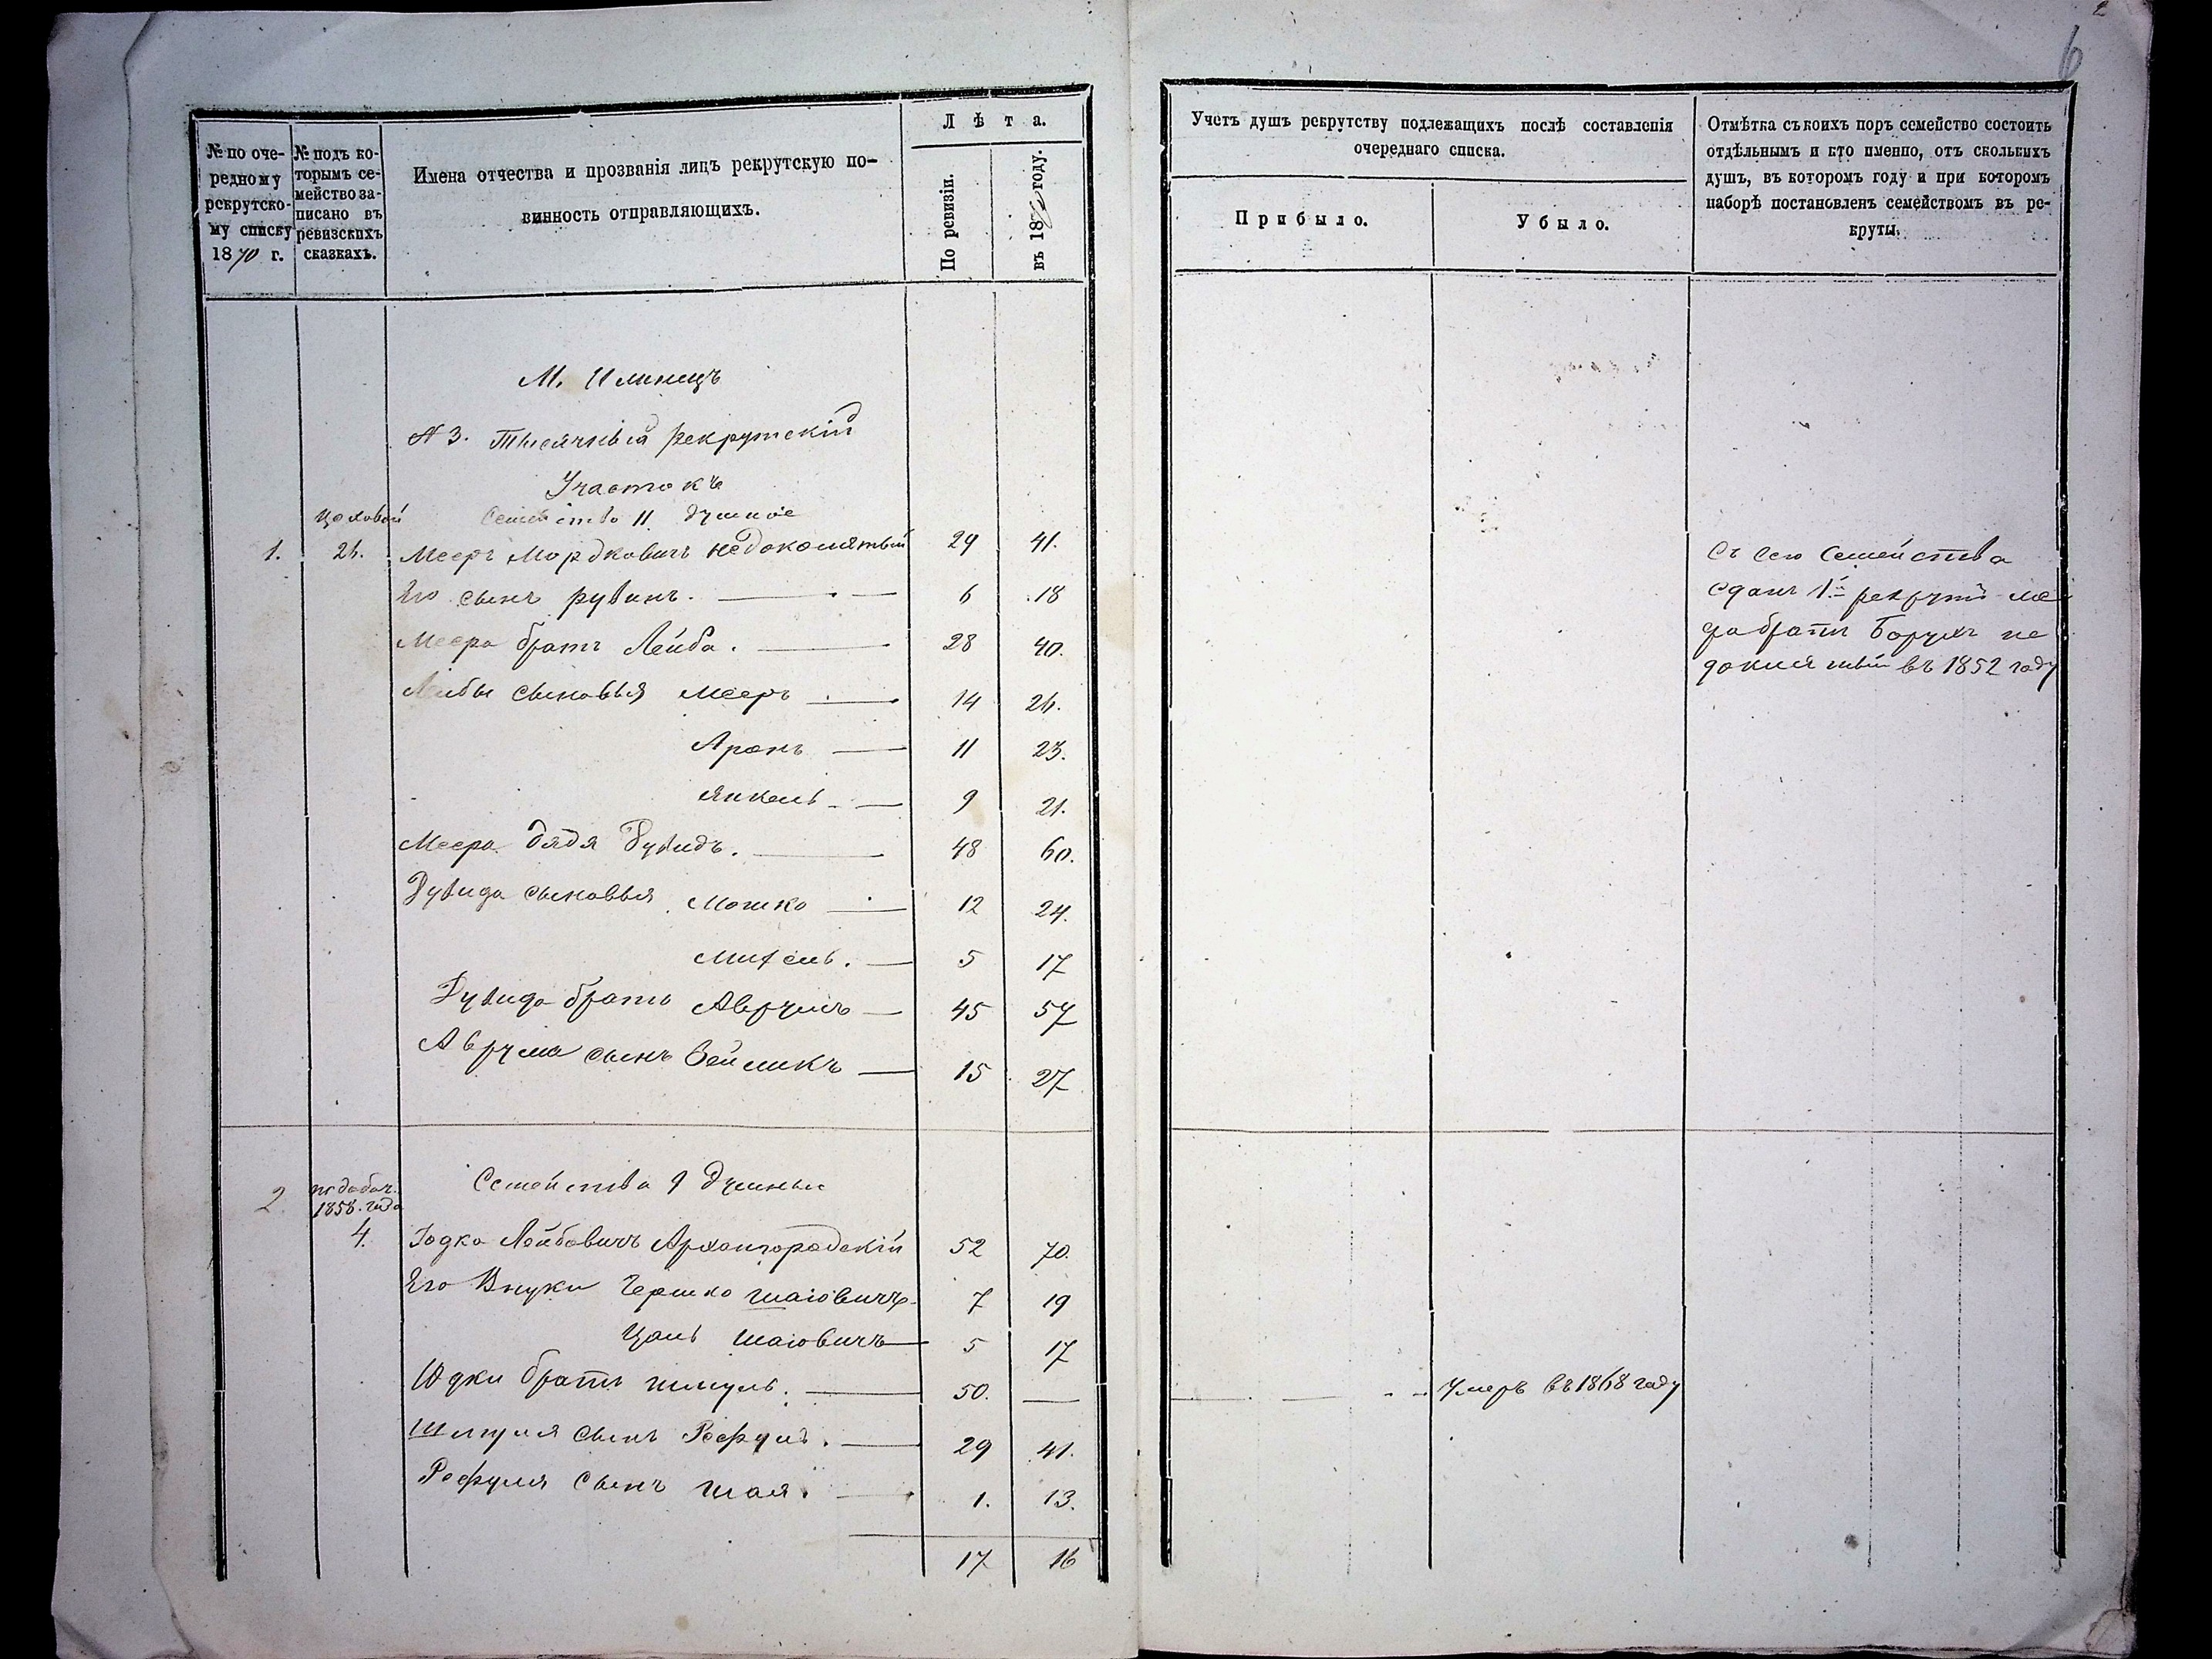 2
6
№ по оче-
редному
рекрутско-
му списку
1870 г.
№ подъ ко-
торымъ се-
мейство за-
писано въ
ревизскихъ
сказкахъ.
Имена отчества и прозванія лицъ рекрутскую по-
винность отправляющихъ.
Лѣта.
По ревизіи.
въ 18 году.
Учетъ душъ рекрутству подлежащихъ послѣ составленія
очереднаго списка.
Прибыло.
Убыло.
Отмѣтка съ коихъ поръ семейство состоитъ
отдѣльнымъ и кто именно, отъ сколькихъ
душъ, въ которомъ году и при которомъ
наборѣ постановленъ семействомъ въ ре-
круты.
М. Илинецъ
№ 3. Тысячный рекрутскій
Участокъ
Цеховой Семейство 11 душное
1. 24. Мееръ Мордковичъ 29 41.
Его сынъ рувинъ. 6 18
Меера братъ Лейба. 28 40.
Лейбы сыновья Мееръ 14 26.
Аронъ 11 23.
Янкель 9 21.
Меера дядя Дувидъ. 48 60.
Дувида сыновья Мошко 12 24.
Михель. 5 17
Дувида братъ Аврумъ 45 57
Аврума сынъ Зейликъ 15 27
Съ сего Семейства
сданъ 1й рекрутъ ме
ра братъ Борухъ не
въ 1852 году
по добав.
1858. года
2 Семейства 9 душны
4. Іодко Лейбовичъ Архангородскій 52 70.
Его Внуки Гершко шаіовичъ 7 19
Цаль шаіовичъ 5 17
Юдки братъ шмуль. 50. —
Умеръ въ 1868 году
Шмуля сынъ Рефуль. 29 41.
Рефуля сынъ шая. 1. 13.
17 16